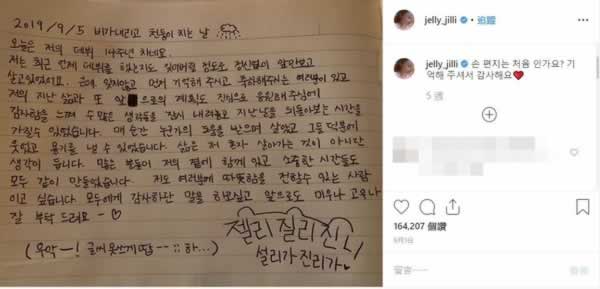 2019/9/5 비가내리고 천둥이 치는 날
오늘은 저의 데뷔 14주년 차네요.
저는 최근 언제 데뷔를 했는지도 잊어버릴 정도로 정신없이 앞만보고
살고있었어요. 은데 잊지않고 먼저 기억해 주시고 축하해주시는 여러분이 있고
저의 지난 삶과 또 앞으로의 계획도 진심으로 응원해주심에
감사함을 느껴 수 많은 생각들을 잠시 내려놓고 지난날을 뒤돌아보는 시간을
가질수 있었습니다. 매 순간 누군가의 도움을 받으며 살았고 그들 덕분에
웃었고 용기를 낼 수 있었습니다. 삶은 저 혼자 살아가는 것이 아니란
생각이 듭니다. 많은 분들이 저의 곁에 함께 있고 소중한 시간들도
모두 같이 만들었습니다. 저도 여러분께 따뜻함을 전할수 있는 사람
이고 싶습니다. 모두에게 감사하단 말을 하고싶고 앞으로도 미우나 고우나
잘 부탁 드려요 - ♡
(우악-! 글씨 못쓰게땁 --;; 하...)
젤리 질리 진리
설리가 진리가♡
jelly_jilli • 追蹤
jelly_jilli 손 편지는 처음 인가요? 기
억해 주셔서 감사해요❤
5 週
164,207 個讚
9月5日
留言⋯⋯